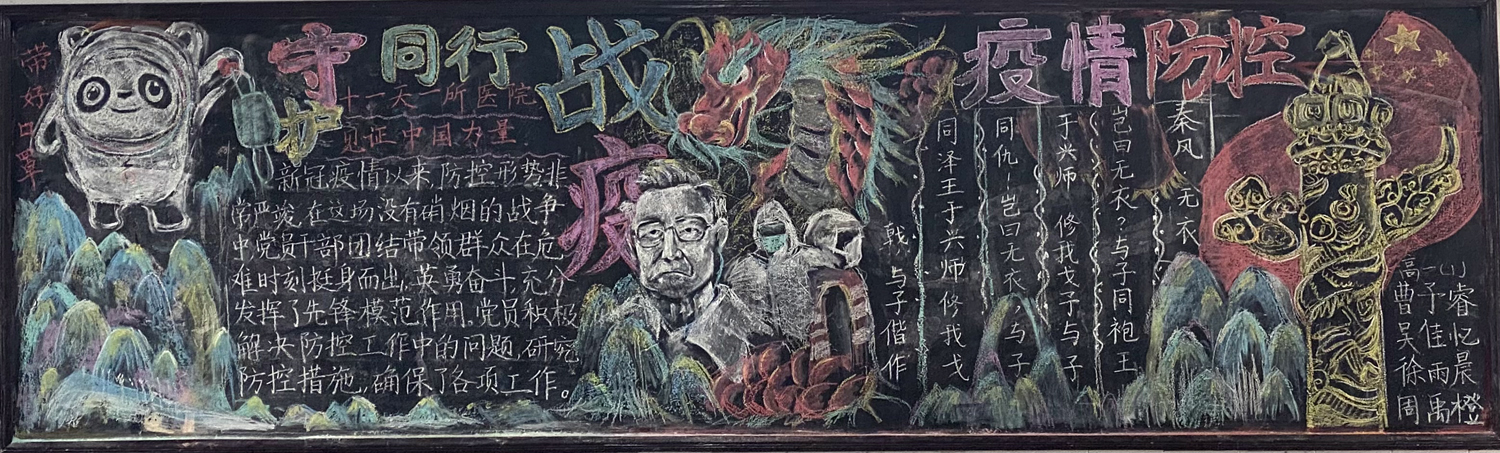 带好口罩
守护同行
战疫
疫情防控
十一天一所医院
见证中国力量
新冠疫情以来,防控形势非
常严竣,在这场没有硝烟的战争
中党员干部团结带领群众在危
难时刻挺身而出,英勇奋斗,充分
发挥了先锋模范作用。党员积极
解决防控工作中的问题,研究
防控措施,确保了各项工作。
秦风 无衣
岂曰无衣?与子同袍王
于兴师 修我戈予与子
同仇·岂曰无衣,与子
同泽王于兴师修我戈
戟,与子偕作
高一山
曹予睿
吴佳忆
徐雨晨
周禹橙